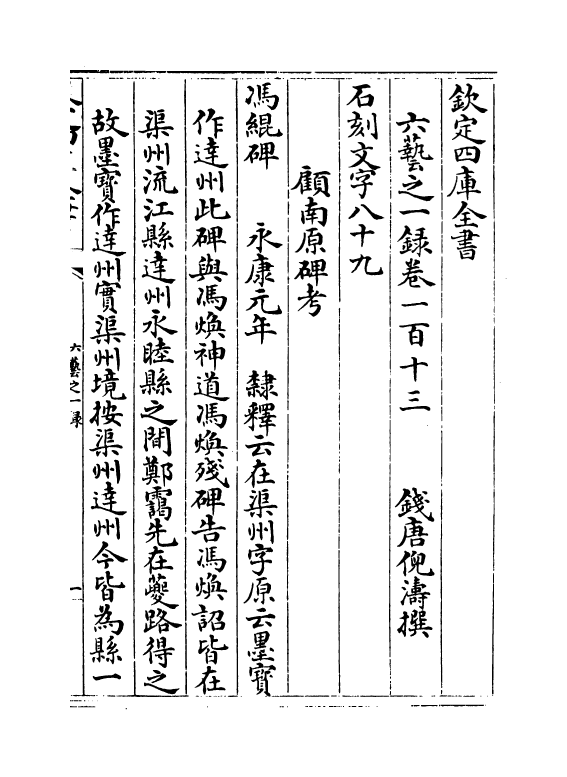 欽定四庫全書
六藝之一錄卷一百十三
錢唐倪濤撰
石刻文字八十九
顧南原碑考
馮緄碑　永康元年　隸釋云在渠州字原云墨寳
作達州此碑與馮煥神道馮煥殘碑告馮煥詔皆在
渠州流江縣達州永睦縣之間鄭靄先在夔路得之
故墨寳作達州實渠州境按渠州達州今皆為縣一
六藝之一录
一